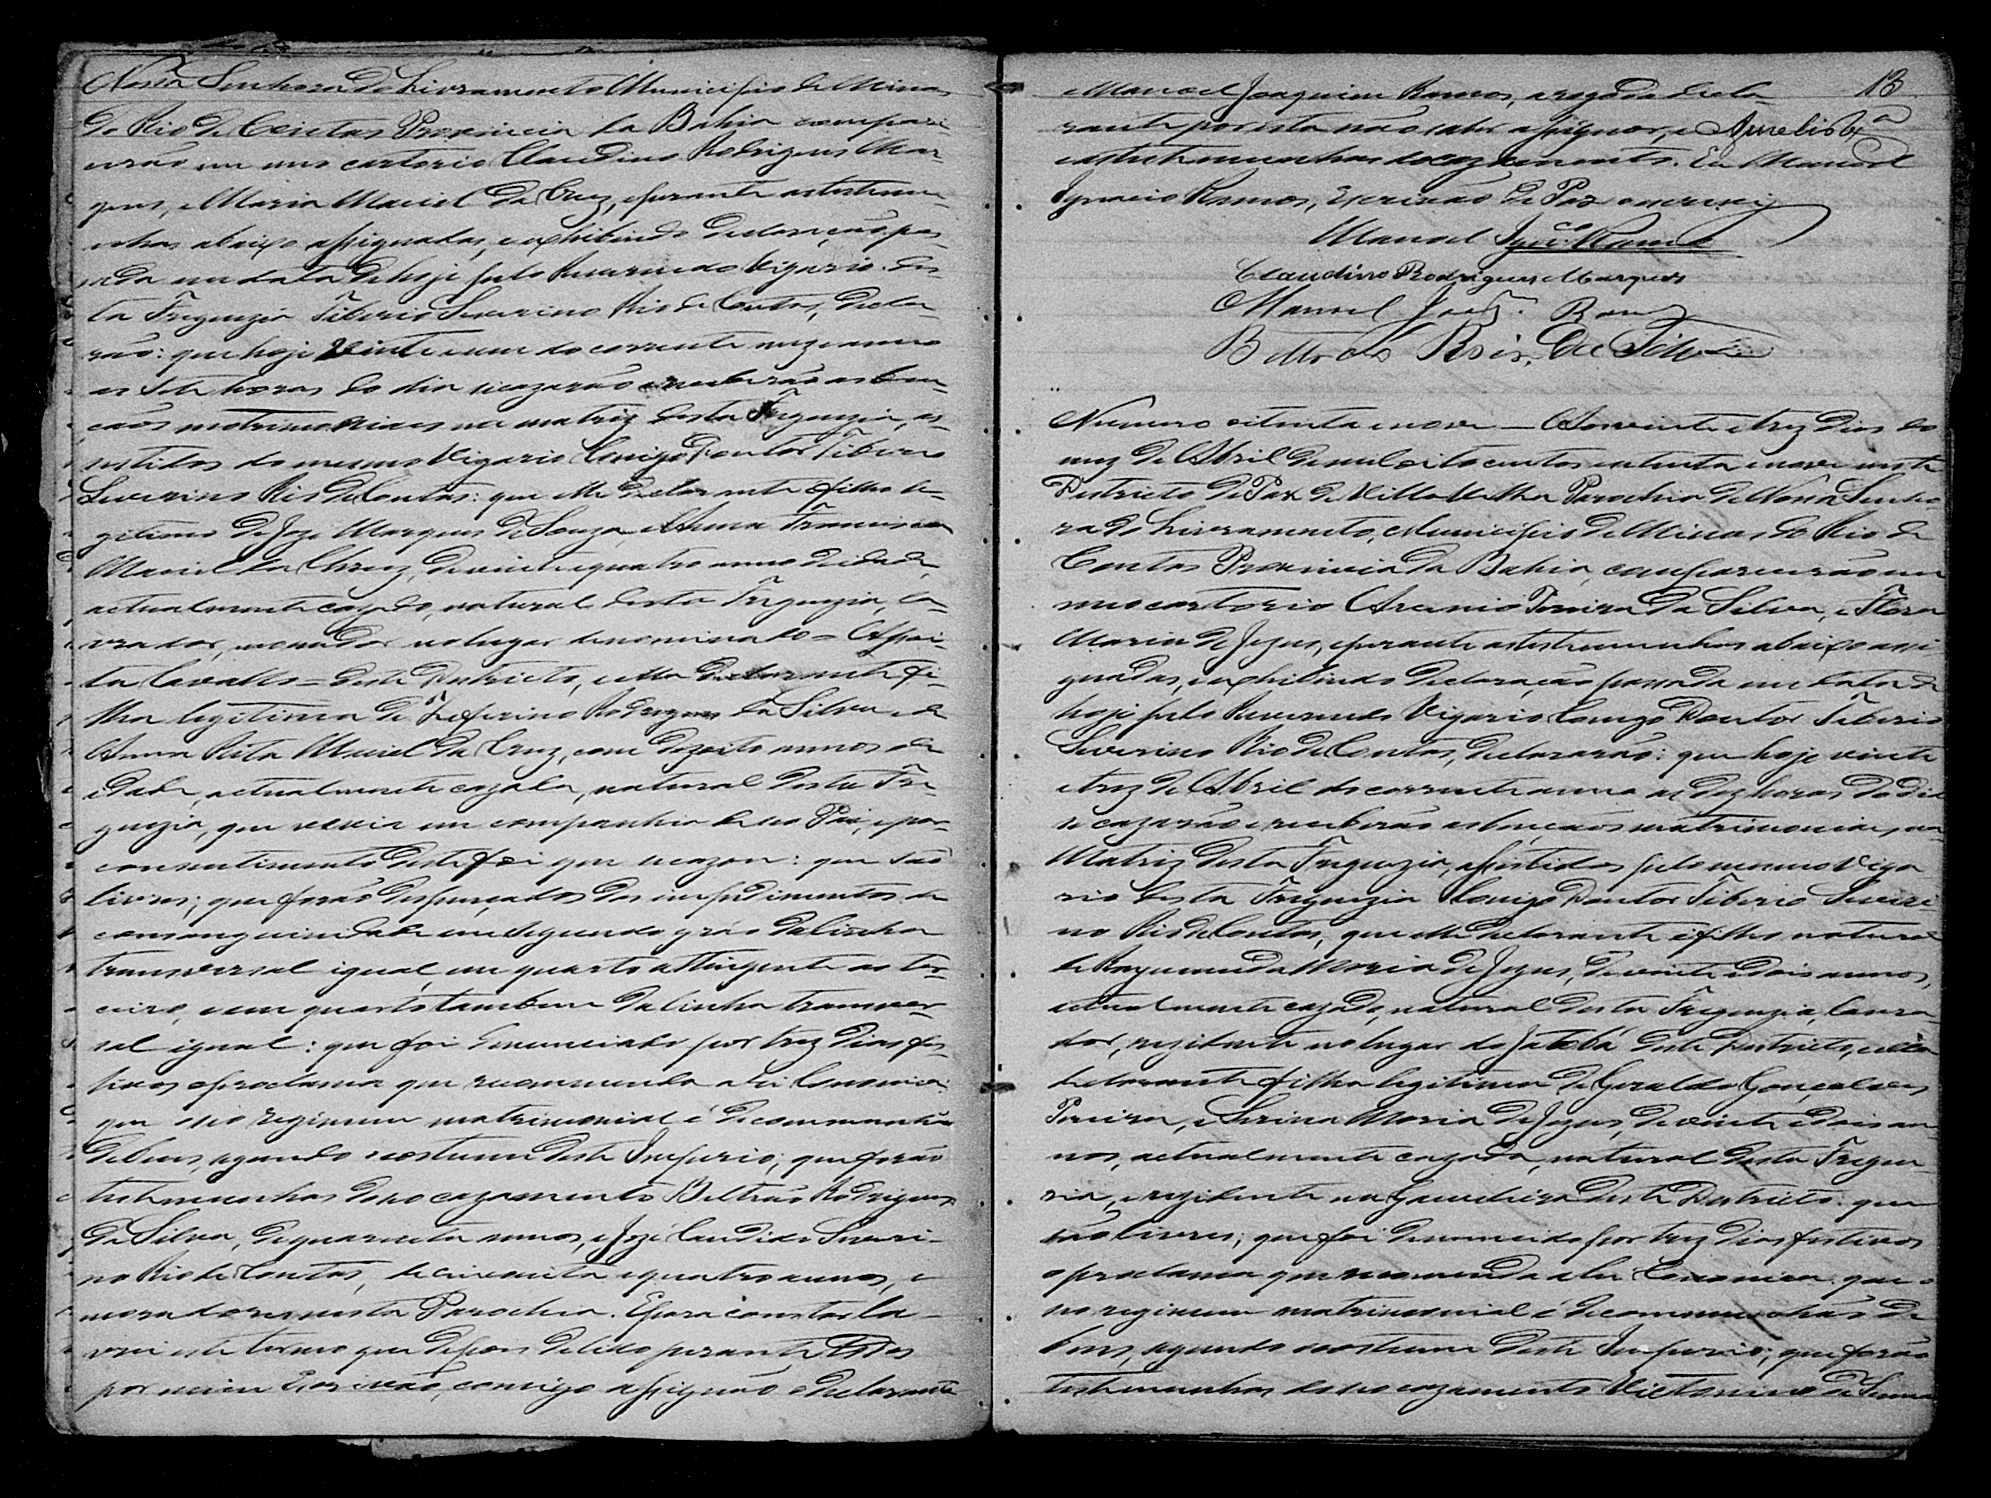 Nossa Senhora do Livramento Municipio de Minas
do Rio de Contas Provincia da Bahia compare
cerão em meu cartorio Claudino Rodrigues Mar-
ques, e Maria Maciel da Cruz, e perante as testemu-
nhas abaixo assignadas, e exhibindo declaração pas-
sada em data de hoje pelo Reverendo Vigario des-
ta Freguezia Tiberio Severino Rio de Contas, decla-
rão: que hoje vinte e um do corrente mez e anno
as sete horas do dia se cazarão e receberão as ben-
çãos matrimoniaes na matriz desta Freguezia, as-
sistidos do mesmo Vigario Conigo Doutor Tiberio
Severino Rio de Contas: que elle declarante é filho le-
gitimo de Joze Marques de Souza, e Anna Francisca
Maciel da Chruz, de vinte e quatro annos de idade,
actualmente cazado, natural desta Freguezia, la-
vrador, morador no lugar denominado =
ta Cavallo = deste Districto, e ella declarante fi-
lha legitima de Zeferino Rodrigues da Silva e de
Anna Rita Maciel da Cruz, com dezoito annos de
idade, actualmente cazada, natural desta Fre-
guezia, que vevia em companhia de seo Pai, e por
consentimento deste foi que se cazou: que são
livres; que forão despençados dos impedimentos de
consanguinidade em segundo gráo da linha
transversal igual, em quarto attingente ao ter-
ceiro, e em quarto tambem da linha transver-
sal igual: que foi denunciado por trez dias fes-
tivos o proclama que recommenda a lei Canonica:
que o seo regimem matrimonial é de communhão
de bens, segundo o costume deste Imperio; que forão
testemunhas do seo cazamento Beltrão Rodrigues
da Silva, de quarenta annos, e Jozé Candido Severi-
no Rio de Contas, de cincoenta e quatro annos, e
moradores nesta Parochia. E para constar la-
vrei este termo que depois de lido perante todos
por mim Escrivão, comigo assignão o declarante
13
e Manoel Joaquim Ramos, a rogo da decla-
rante por esta não saber assignar, e
e as testemunhas do cazamento. Eu Manoel
Ignacio Ramos, Escrivão de Paz o escrevi
Manoel Igcº Ramos
Claudino Rodrigues Marques
Manoel Joaqm. Ramos
Roiz. da Silva
Numero oitenta e nove — Aos vinte e trez dias do
mez de Abril de mil oito centos e oitenta e nove neste
Districto de Paz de Villa Velha Parochia de Nossa Senho
ra do Livramento, Municipio de Minas do Rio de
Contas Provincia da Bahia, comparecerão em
meo cartorio Arcenio Pereira da Silva, e Flora
Maria de Jezus, e perante as testemunhas abaixo assi
gnadas, e exhibindo declaração passada em data de
hoje pelo Reverendo Vigario Conigo Doutor Tiberio
Severino Rio de Contas, declararão: que hoje vinte
e trez de Abril do corrente anno as dez horas do dia
se cazarão e receberão as bençãos matrimoniaes na
Matriz desta Freguezia, assistidos pelo mesmo Viga
rio desta Freguezia Conigo Doutor Tiberio Severi-
no Rio de Contas, que elle declarante é filho natural
de Raymunda Maria de Jezus, de vinte e dois annos,
actualmente cazado, natural desta Freguezia, lavra-
dor, rezidente no lugar do Jatobá deste Districto, e ella
declarante filha legitima de Geraldo Gonçalves
Pereira, e Maria de Jezus, de vinte e dois an-
nos, actualmente cazada, natural desta Fregue
zia, e rezidente na deste Districto: que
são livres; que foi denunciado por trez dias festivos
o proclama que recomenda a lei Canonica: que o
seo regimem matrimonial é de communhão de
bens, segundo o costume deste Imperio; que forão
testemunhas do seo cazamento Victorino de Souza